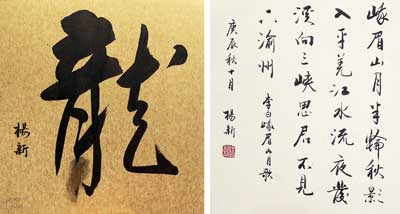 龍
楊新
峨眉山月半輪秋影
入平羌江水流夜發
溪向三峽思君不見
下渝州
李白峨眉山月歌
庚辰秋十月
楊新